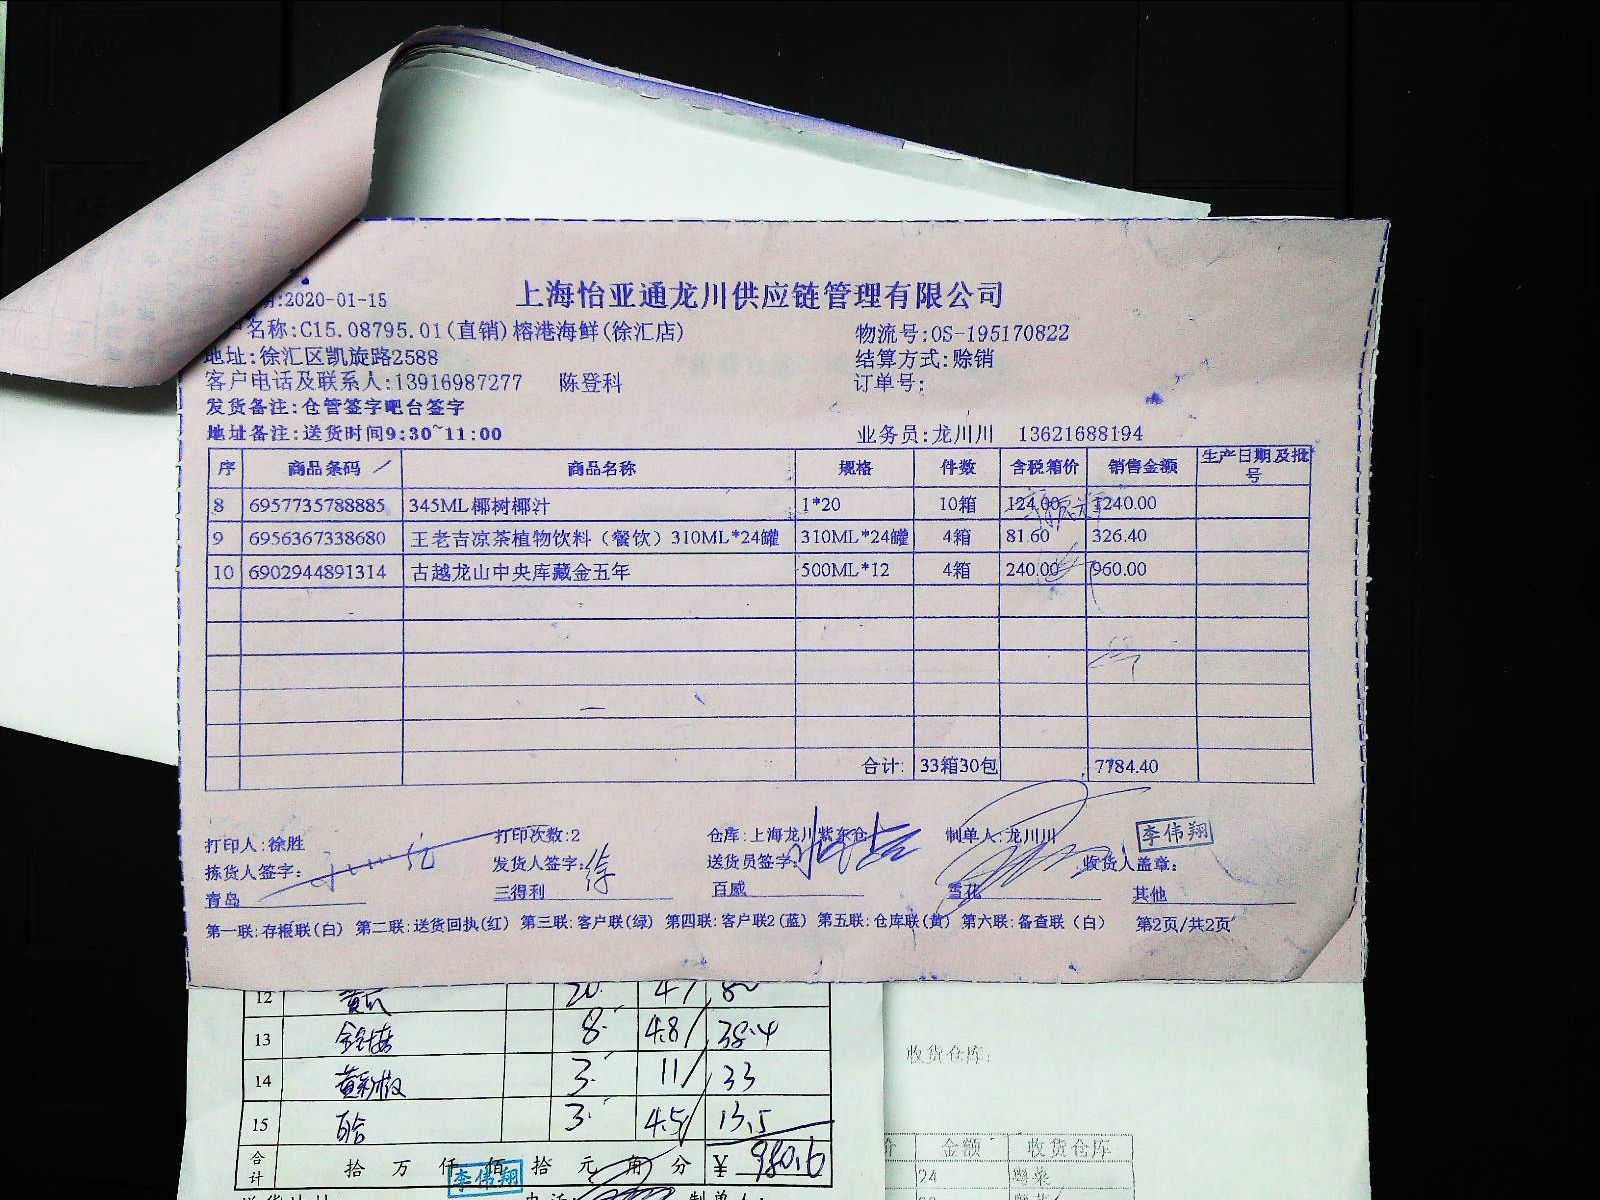 上海怡亚通龙川供应链管理有限公司
:2020-01-15
名称:C15.08795.01(直销)榕港海鲜(徐汇店)
物流号:OS-195170822
地址:徐汇区凯旋路2588
结算方式:赊销
客户电话及联系人:13916987277 陈登科
订单号:
发货备注:仓管签字吧台签字
地址备注:送货时间9:30~11:00
业务员:龙川川 13621688194
序 商品条码 商品名称 规格 件数 含税箱价 销售金额 生产日期及批号
8 6957735788885 345ML椰树椰汁 1*20 10箱 124.00 1240.00
9 6956367338680 王老吉凉茶植物饮料（餐饮）310ML*24罐 310ML*24罐 4箱 81.60 326.40
10 6902944891314 古越龙山中央库藏金五年 500ML*12 4箱 240.00 960.00
合计: 33箱30包 7784.40
打印人:徐胜 打印次数:2 仓库:上海龙川紫东仓 制单人:龙川川 李伟翔
拣货人签字: 发货人签字: 徐 送货员签字: 收货人盖章:
青岛 三得利 百威 雪花 其他
第一联:存根联(白) 第二联:送货回执(红) 第三联:客户联(绿) 第四联:客户联2(蓝) 第五联:仓库联(黄) 第六联:备查联(白) 第2页/共2页
12 黄瓜 20 4 80
13 8 4.8 38.4
14 黄彩椒 3 11 33
15 百合 3 4.5 13.5
合计 拾 万 仟 佰 拾 元 角 分 ¥ 980.6
李伟翔
制单人:
收货仓库:
价 金额 收货仓库
24 粤菜